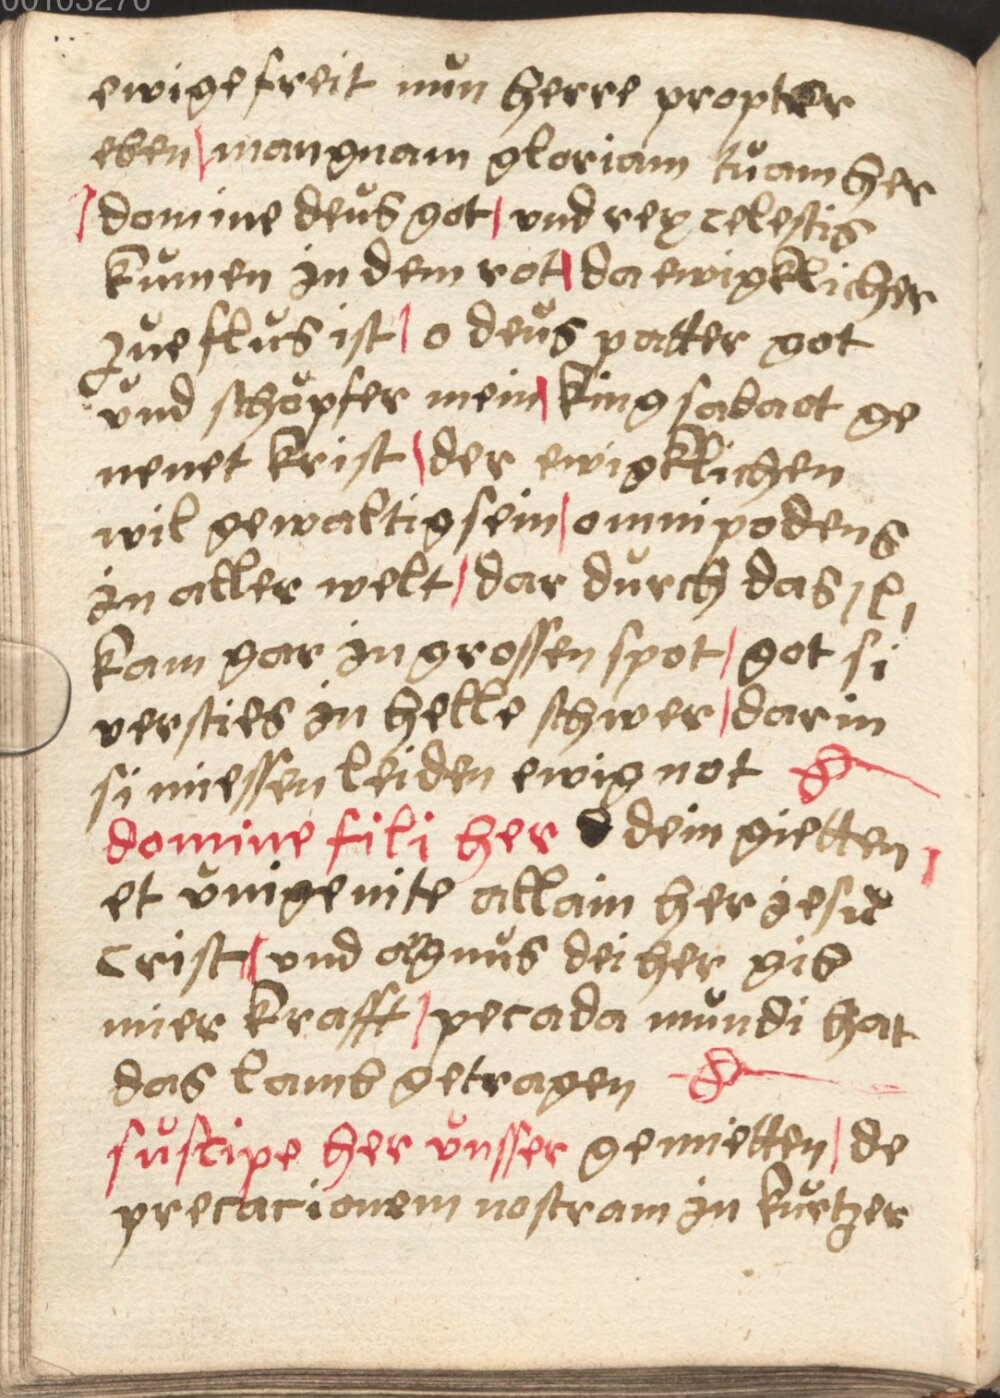 00103270
ewige freit nun herre propter
eben / mangnam gloriam tuam her
/ domine deus got / und rex celestis
kumen in dem rot / da ewigklicher
zue flus ist / o deus patter got
und schöpfer mein / king sabaot ge
nenet krist / der ewigklichen
wil gewaltig sein / omnipodens
in aller welt / dar durch das / l /
kam gar in grossen spot / got si
versties in helle schwer / darin
si miessen leiden ewig not
domine fili her dein gietten /
et unigenite allain her jesu
Crist / und agnus dei her gib
mier krafft / pecada mundi hat
das lamb getragen
suscipe her unsser gemietten / de
precacionem nostram in kurtzer